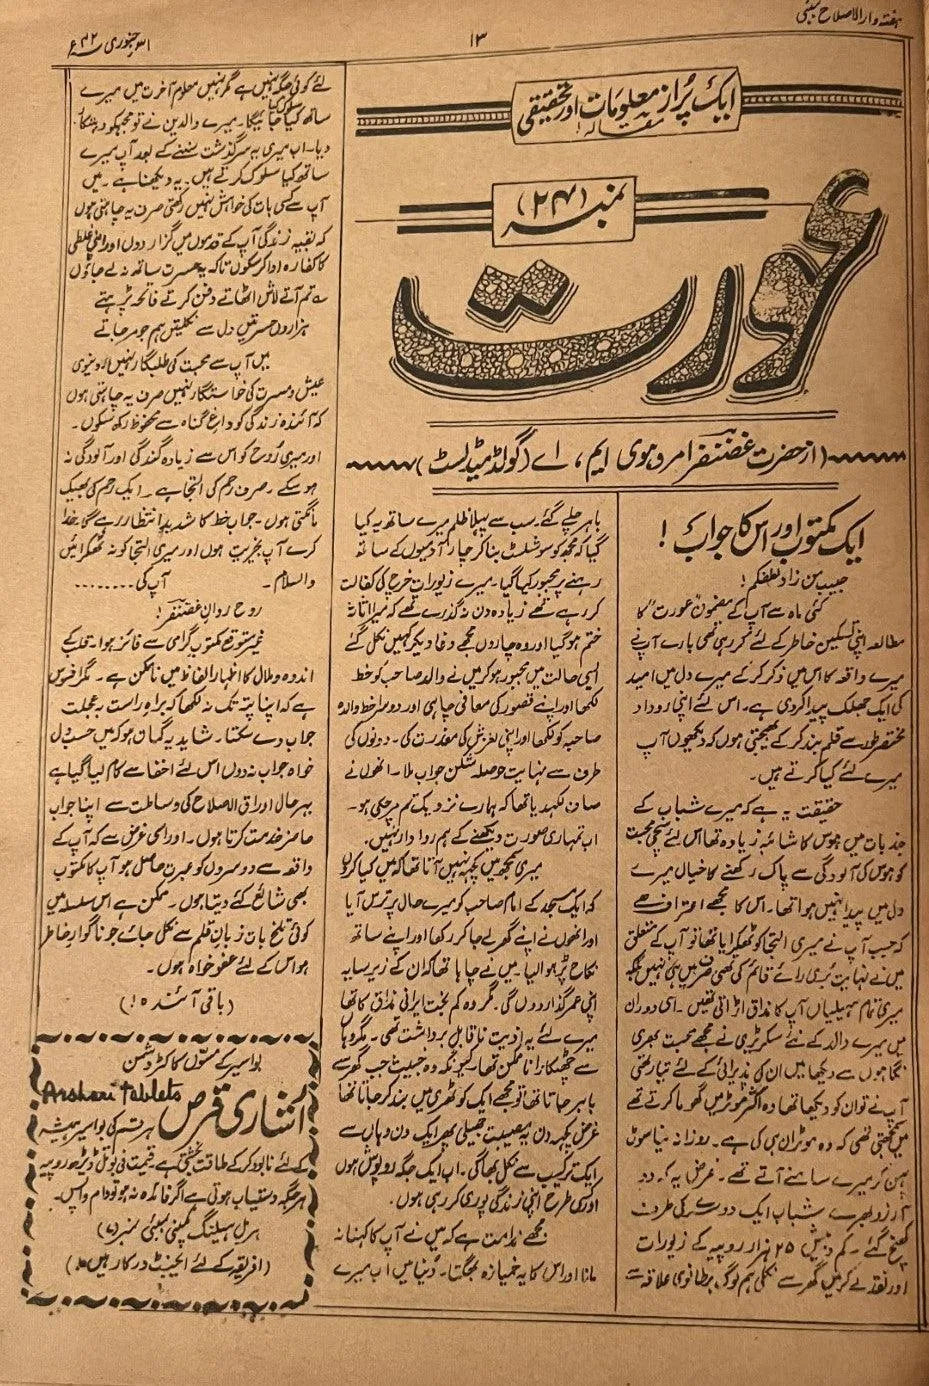 ہفتہ وار الاصلاح بمبئی
۱۳
۳۱ جنوری ۴۲ء
ایک پُر از معلومات اور تحقیقی
مقالہ
نمبر (۲۴)
عورت
(از حضرت غضنفر امروہوی ایم، اے (گولڈ میڈلسٹ)
ایک مکتوب اور اس کا جواب!
حبیب من زاد لطفکم!
کئی ماہ سے آپ کے مضمون "عورت" کا
مطالعہ اپنی تسکین خاطر کے لئے کر رہی تھی بارے آپ نے
میرے واقعہ کا اس میں ذکر کر کے میرے دل میں امید
کی ایک جھلک پیدا کر دی ہے۔ اس لئے اپنی روداد
مختصر طور سے قلم بند کر کے بھیجتی ہوں کہ دیکھوں آپ
میرے لئے کیا کرتے ہیں۔
حقیقت یہ ہے کہ میرے شباب کے
جذبات میں ہوس کا شائبہ زیادہ تھا اس لئے سچی محبت
کو ہوس کی آلودگی سے پاک رکھنے کا خیال میرے
دل میں پیدا نہیں ہوا تھا۔ اس کا مجھے اعتراف ہے
کہ جب آپ نے میری التجا کو ٹھکرایا تھا تو آپ کے متعلق
میں نے نہایت بُری رائے قائم کی تھی صرف میں ہی نہیں بلکہ
میری تمام سہیلیاں آپ کا مذاق اڑاتی تھیں۔ اسی دوران
میں میرے والد کے نئے سکرٹری نے مجھے محبت بھری
نگاہوں سے دیکھا میں ان کی پذیرائی کے لئے تیار تھی
آپ نے تو ان کو دیکھا تھا وہ اکثر موٹر میں گھوما کرتے تھے
میں سمجھتی تھی کہ وہ موٹر ان ہی کی ہے۔ روزانہ نیا سوٹ
پہن کر میرے سامنے آتے تھے۔ غرض یہ کہ دو
آرزو بھرے شباب ایک دوسرے کی طرف
کھنچ گئے۔ کم و بیش ۲۵ ہزار روپیہ کے زیورات
اور نقد لے کر میں گھر سے نکلی ہم لوگ برطانوی علاقہ سے
باہر چلے گئے۔ سب سے پہلا ظلم میرے ساتھ یہ کیا
گیا کہ مجھ کو سوشلسٹ بنا کر چار آدمیوں کے ساتھ
رہنے پر مجبور کیا گیا۔ میرے زیورات خرچ کی کفالت
کر رہے تھے زیادہ دن نہ گذرے تھے کہ میرا اثاثہ
ختم ہو گیا اور وہ چاروں مجھے دغا دیکر کہیں نکل گئے
ایسی حالت میں مجبور ہو کر میں نے والد صاحب کو خط
لکھا اور اپنے قصور کی معافی چاہی اور دوسرا خط والدہ
صاحبہ کو لکھا اور اپنی لغزش کی معذرت کی۔ دونوں کی
طرف سے نہایت حوصلہ شکن جواب ملا۔ انھوں نے
صاف لکھدیا تھا کہ ہمارے نزدیک تم مر چکی ہو۔
اب تمہاری صورت دیکھنے کے ہم روادار نہیں۔
میری سمجھ میں کچھ نہیں آتا تھا کہ میں کیا کروں
کہ ایک مسجد کے امام صاحب کو میرے حال پر ترس آیا
اور انھوں نے اپنے گھر لے جا کر رکھا اور اپنے ساتھ
نکاح پڑھوا لیا۔ میں نے چاہا تھا کہ ان کے زیر سایہ
اپنی عمر گذار دوں گی۔ مگر وہ کم بخت ایرانی مذاق کا تھا
میرے لئے یہ اذیت ناقابل برداشت تھی۔ مگر وہاں
سے چھٹکارا ناممکن تھا۔ کیونکہ وہ خبیث جب گھر سے
باہر جاتا تھا تو مجھے ایک کوٹھری میں بند کر جاتا تھا
غرض کچھ دن یہ مصیبت جھیلی پھر ایک دن وہاں سے
ایک ترکیب سے نکل بھاگی۔ اب ایک جگہ روپوش ہوں
اور کسی طرح اپنی زندگی پوری کر رہی ہوں۔
مجھے ندامت ہے کہ میں نے آپ کا کہنا نہ
مانا اور اس کا یہ خمیازہ بھگتا۔ دنیا میں اب میرے
لئے کوئی جگہ نہیں ہے مگر نہیں معلوم آخرت میں میرے
ساتھ کیا سلوک کیا جائیگا۔ میرے والدین نے تو مجھکو دھتکار
دیا۔ اب میری یہ سرگذشت سننے کے بعد آپ میرے
ساتھ کیا سلوک کرتے ہیں۔ یہ دیکھنا ہے۔ میں
آپ سے کسی بات کی خواہش نہیں رکھتی صرف یہ چاہتی ہوں
کہ بقیہ زندگی آپ کے قدموں میں گزار دوں اور اپنی غلطی
کا کفارہ ادا کر سکوں تاکہ یہ حسرت ساتھ نہ لے جاؤں
تم آتے لاش اٹھاتے دفن کرتے فاتحہ پڑھتے
ہزاروں حسرتیں دل سے نکلیتں ہم جو مر جاتے
میں آپ سے محبت کی طلبگار نہیں اور دنیوی
عیش و مسرت کی خواستگار نہیں صرف یہ چاہتی ہوں
کہ آئندہ زندگی کو داغِ گناہ سے محفوظ رکھ سکوں۔
اور میری رُوح کو اس سے زیادہ گندگی اور آلودگی نہ
ہو سکے۔ صرف رحم کی التجا ہے۔ ایک رحم کی بھیک
مانگتی ہوں۔ جواب خط کا شدید انتظار رہے گا خدا
کرے آپ بخیریت ہوں اور میری التجا کو نہ ٹھکرائیں
والسلام۔ آپ کی ........
روح روانِ غضنفر!
غیر متوقع مکتوب گرامی سے فائز ہوا۔ قلب کے
اندوہ و ملال کا اظہار الفاظ میں ناممکن ہے۔ مگر افسوس
ہے کہ اپنا پتہ تک نہ لکھا کہ براہِ راست بہ عجلت
جواب دے سکتا۔ شاید یہ گمان ہو کہ میں حسب دل
خواہ جواب نہ دوں اس لئے اخفا سے کام لیا گیا ہے
بہر حال اوراق الاصلاح کی وساطت سے اپنا جواب
حاضر خدمت کرتا ہوں۔ اور اسی غرض سے کہ آپ کے
واقعہ سے دوسروں کو عبرت حاصل ہو آپ کا مکتوب
بھی شائع کئے دیتا ہوں۔ ممکن ہے اس سلسلہ میں
کوئی تلخ بات زبان قلم سے نکل جائے جو ناگوار خاطر
ہو اس کے لئے عفو خواہ ہوں۔
(باقی آئندہ!)
بواسیر کے مسّوں کا کٹر دشمن
Arshari Tablets
اَشاری قرص ہر قسم کی بواسیر ہمیشہ
کے لئے نابود کر کے طاقت بخشتی ہے قیمت فی بوتل ڈیڑھ روپیہ
ہر جگہ دستیاب ہوتی ہے اگر فائدہ نہ ہو تو دام واپس۔
ہربل ہیلنگ کمپنی بمبئی نمبر (۷)
(افریقہ کے لئے ایجنٹ درکار ہیں)